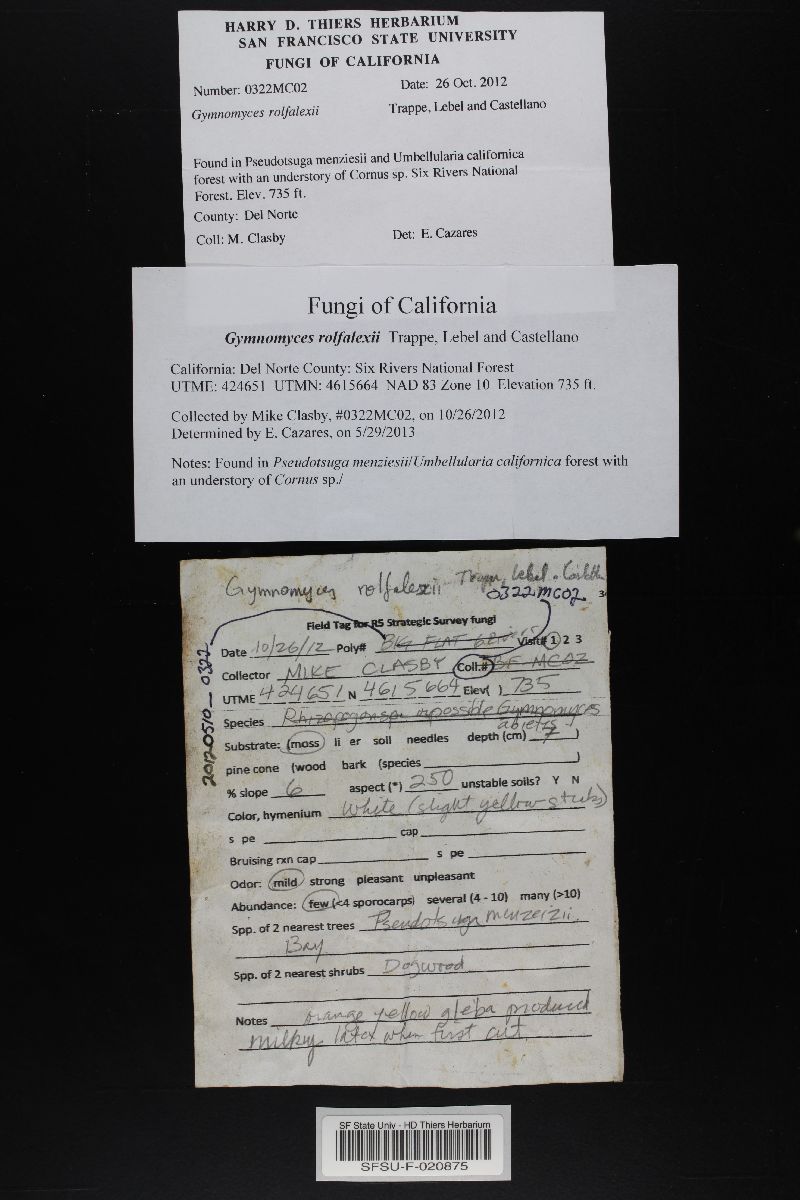 HARRY D. THIERS HERBARIUM
SAN FRANCISCO STATE UNIVERSITY
FUNGI OF CALIFORNIA
Number: 0322MC02 Date: 26 Oct. 2012
Gymnomyces rolfalexii Trappe, Lebel and Castellano
Found in Pseudotsuga menziesii and Umbellularia californica
forest with an understory of Cornus sp. Six Rivers National
Forest. Elev. 735 ft.
County: Del Norte
Coll: M. Clasby Det: E. Cazares
Fungi of California
Gymnomyces rolfalexii Trappe, Lebel and Castellano
California: Del Norte County: Six Rivers National Forest
UTME: 424651 UTMN: 4615664 NAD 83 Zone 10 Elevation 735 ft.
Collected by Mike Clasby, #0322MC02, on 10/26/2012
Determined by E. Cazares, on 5/29/2013
Notes: Found in Pseudotsuga menziesii/Umbellularia californica forest with
an understory of Cornus sp./
Gymnomyces rolfalexii Trappe, Lebel
0322MC02
Field Tag for R5 Strategic Survey fungi
20120510-0322
Date 10/26/12 Poly# BIG FLAT Visit# 1 2 3
Collector MIKE CLASBY Coll.# BF MC02
UTME 424651 N 4615664 Elev( ) 735
Species Rhizopogon sp. possible Gymnomyces
abietis
Substrate: (moss) li er soil needles depth (cm) 7 )
pine cone (wood bark (species )
% slope 6 aspect (°) 250 unstable soils? Y N
Color, hymenium White (slight yellow
s pe cap
Bruising rxn cap s pe
Odor: mild strong pleasant unpleasant
Abundance: few (<4 sporocarps) several (4 - 10) many (>10)
Spp. of 2 nearest trees Pseudotsuga menzeizii,
Bay
Spp. of 2 nearest shrubs Dogwood
Notes orange yellow gleba produced
milky latex when first cut.
SF State Univ - HD Thiers Herbarium
SFSU-F-020875